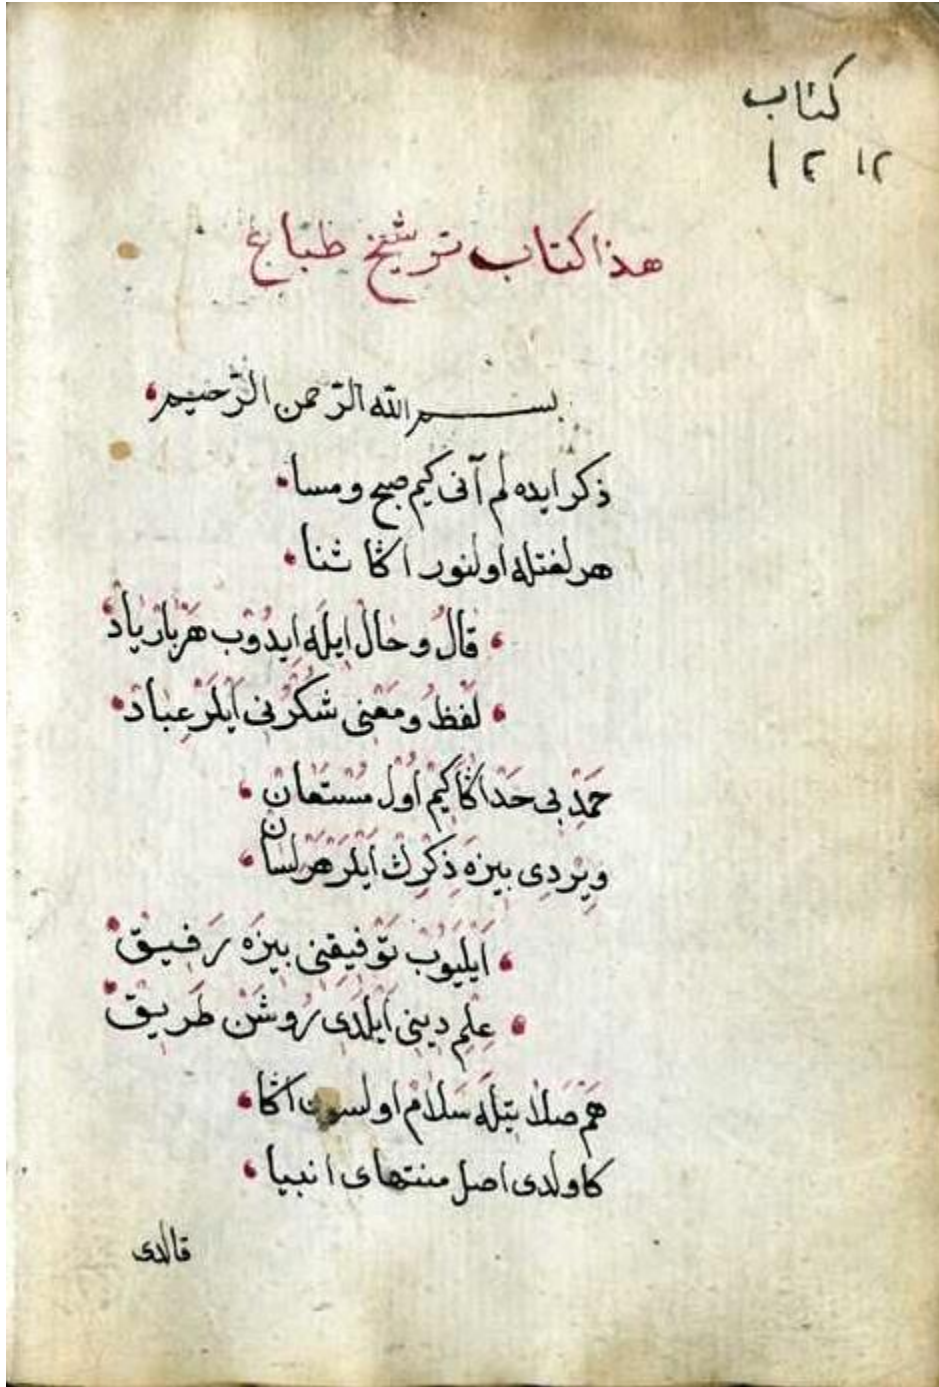 كتاب
١٢ ١٢
هذا كتاب ترشيح طباع
بسم الله الرّحمن الرّحيم
ذكر ايده لم آنى كيم صبح ومسا
هر لغتله اولنور اڭا ثنا
قَالُ وحَالْ ايلَه اِيدُوبْ هَرْبَارْ يَادْ
لَفْظُ ومَعْنى شُكْرُنى اَيْلَرْ عِبَادْ
حَمْدِ بى حَدْ اڭَا كِيمْ اُولْ مُسْتَعَانْ
وِيرْدِى بِيزَه ذِكْرِڭ اَيْلَرْ هَرْ لِسَانْ
اَيْلَيُوبْ تَوْفِيقِنى بِيزَه رَفِيقْ
عِلْمِ دِينى اَيْلَدِى رُوشَنْ طَرِيقْ
هَمْ صَلَاتيلَه سَلَامْ اولسون اڭا
كاولدى اصل منتهاى انبيا
قالدى